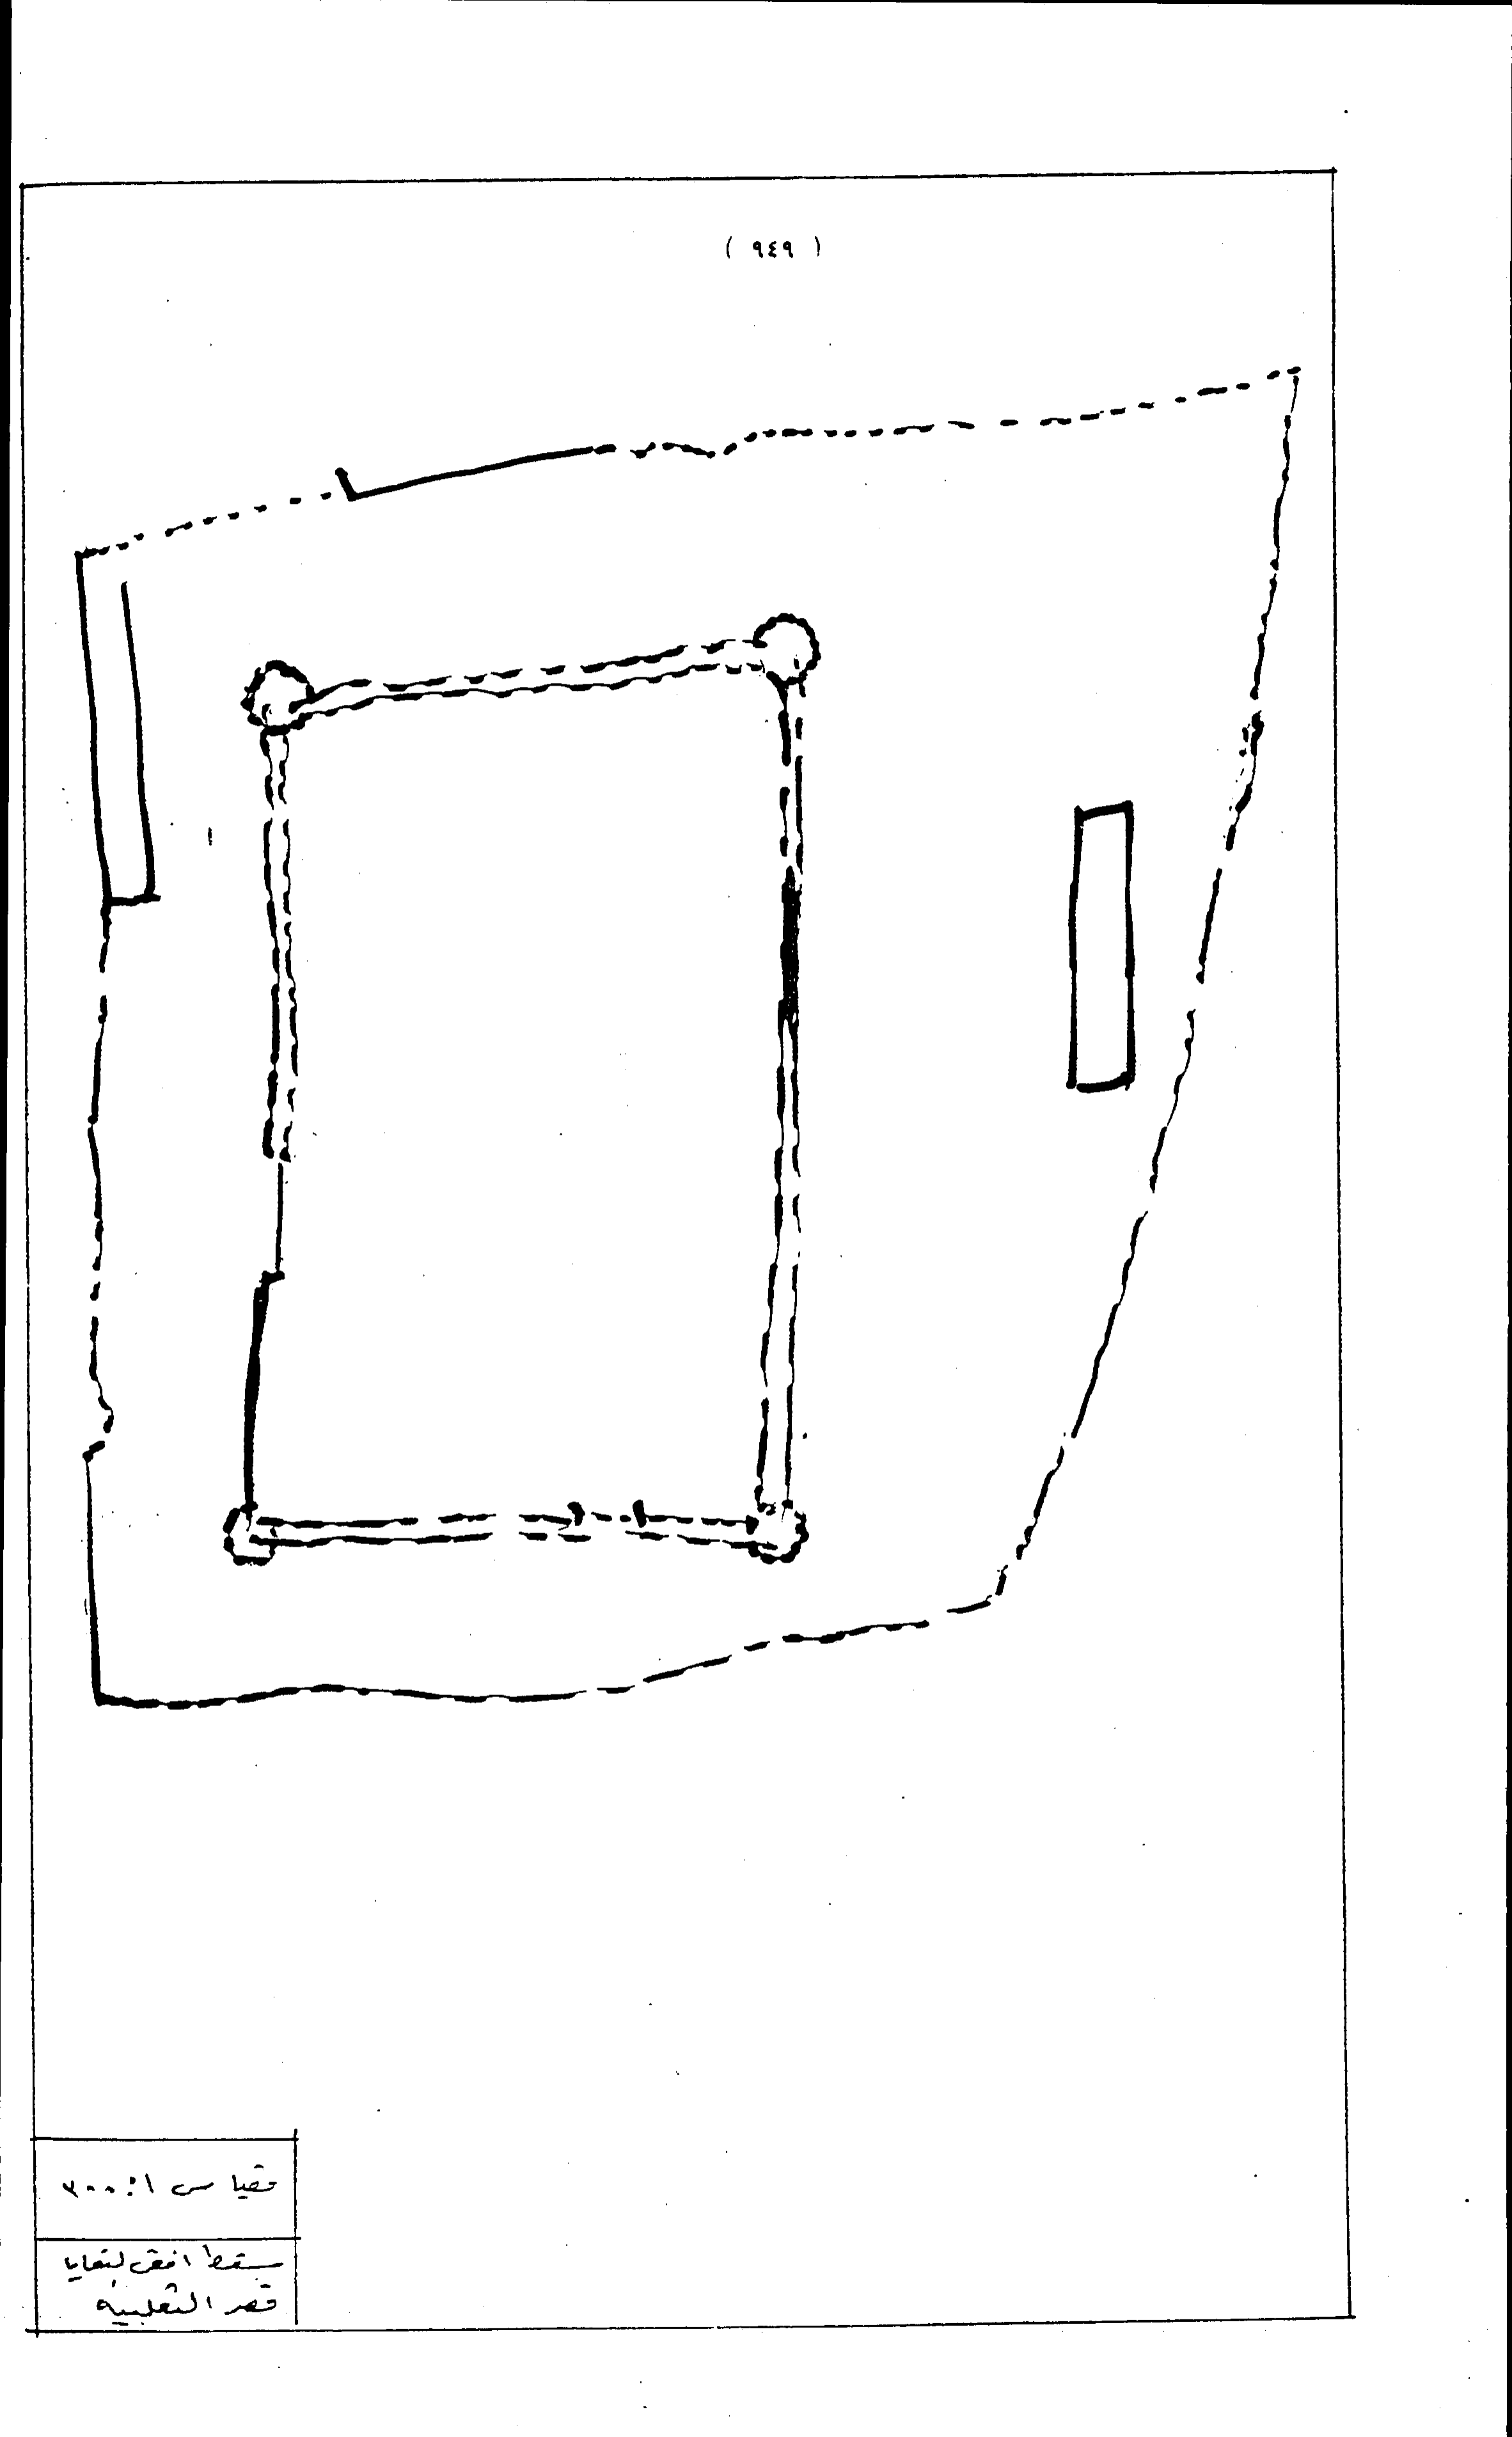 ( ٩٤٩ )
مقياس ١ : ٣٠٠
مسقط افقى لبقايا
قصر الثعلبية